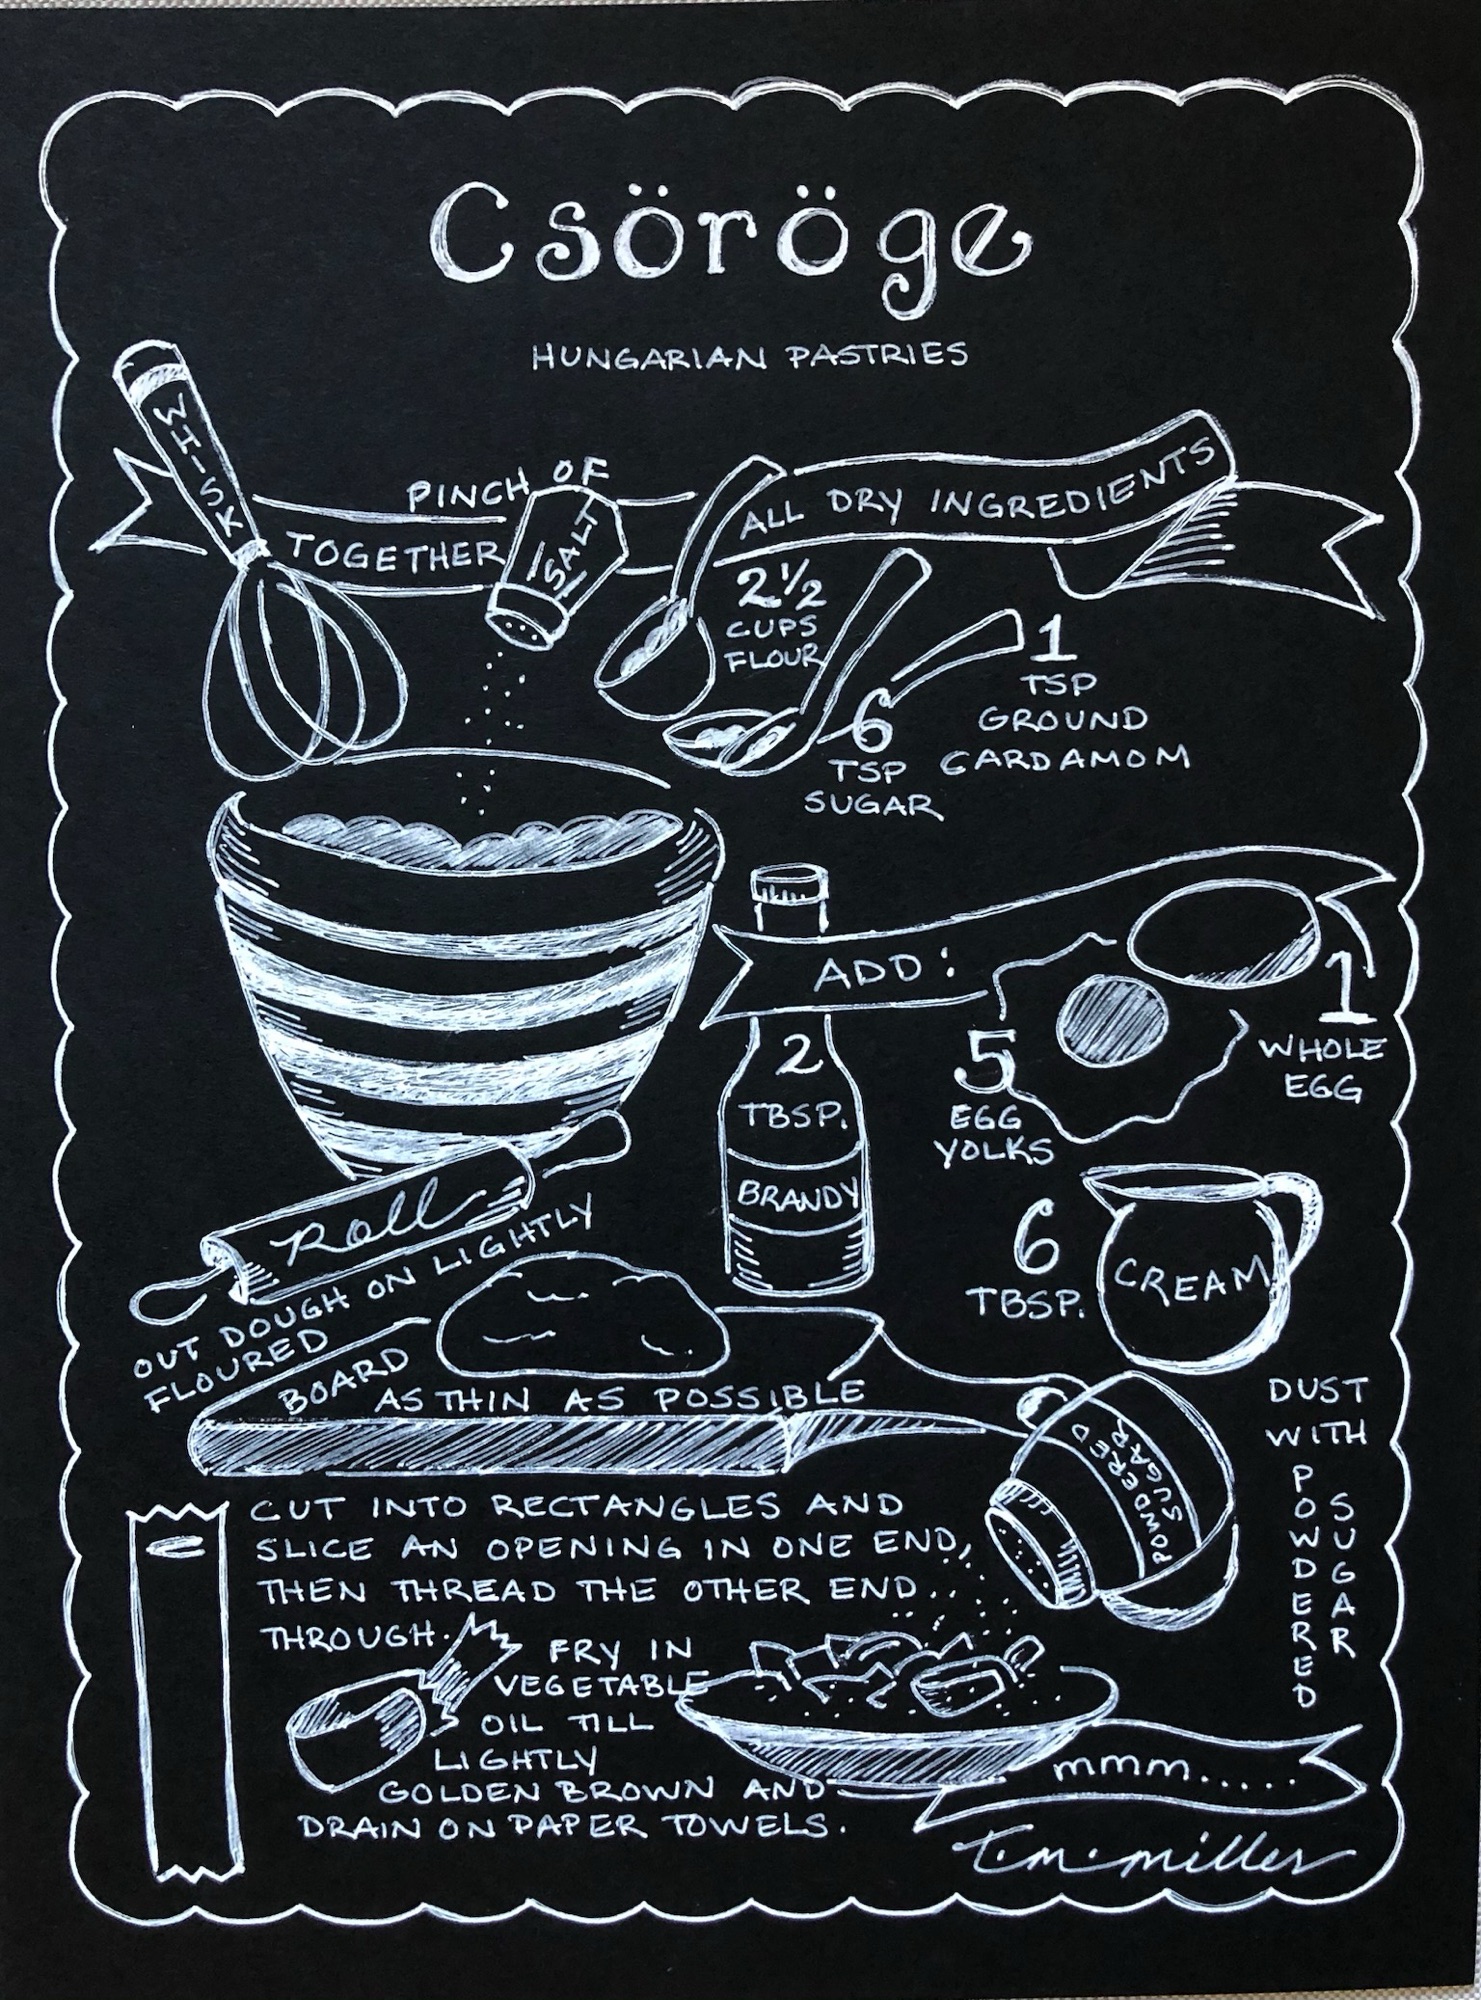 Csöröge
HUNGARIAN PASTRIES
WHISK
TOGETHER
PINCH OF
SALT
ALL DRY INGREDIENTS
2 1/2
CUPS
FLOUR
6
TSP
SUGAR
1
TSP
GROUND
CARDAMOM
ADD:
2
TBSP.
BRANDY
5
EGG
YOLKS
1
WHOLE
EGG
6
TBSP.
CREAM
Roll
OUT DOUGH ON LIGHTLY
FLOURED
BOARD
AS THIN AS POSSIBLE
CUT INTO RECTANGLES AND
SLICE AN OPENING IN ONE END,
THEN THREAD THE OTHER END
THROUGH.
FRY IN
VEGETABLE
OIL TILL
LIGHTLY
GOLDEN BROWN AND
DRAIN ON PAPER TOWELS.
POWDERED
SUGAR
DUST
WITH
POWDERED
SUGAR
mmm.....
T.m.miller